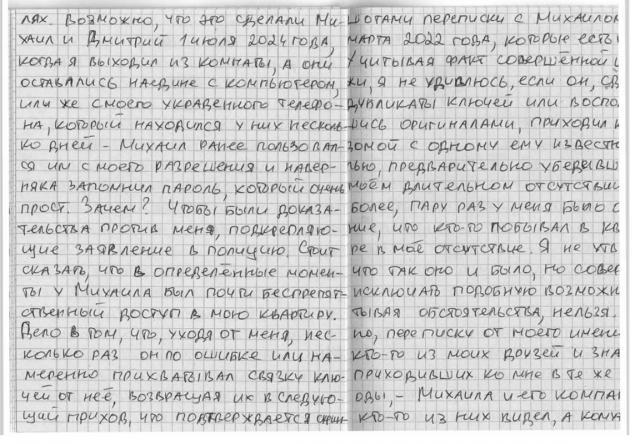 лях. Возможно, что это сделали Ми-
хаил и Дмитрий 1 июля 2024 года,
когда я выходил из комнаты, а они
оставались наедине с компьютером,
или же с моего украденного телефо-
на, который находился у них несколь-
ко дней – Михаил ранее пользовал-
ся им с моего разрешения и навер-
няка запомнил пароль, который очень
прост. Зачем? Чтобы были доказа-
тельства против меня, подкрепляю-
щие заявление в полицию. Стоит
сказать, что в определённые момен-
ты у Михаила был почти беспрепят-
ственный доступ в мою квартиру.
Дело в том, что, уходя от меня, нес-
колько раз он по ошибке или на-
меренно прихватывал связку клю-
чей от неё, возвращая их в следую-
щий приход, что подтверждается скрин-
шотами переписки с Михаилом
марта 2022 года, которые есть
Учитывая факт совершённой
жи, я не удивлюсь, если он, сд
дубликаты ключей или воспо
лись оригиналами, приходил
зомой с одному ему известн
лью, предварительно убедивш
моём длительном отсутствии
более, пару раз у меня было
ние, что кто-то побывал в кв
ре в моё отсутствие. Я не утв
что так оно и было, но совер
исключать подобную возможн
тывая обстоятельства, нельзя.
но, переписку от моего имени
кто-то из моих друзей и зна
приходивших ко мне в те же
оды, – Михаила и его компан
кто-то из них видел, а кома